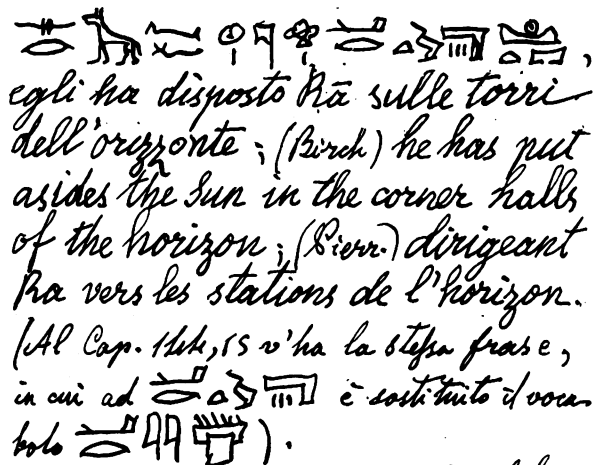 ,
egli ha disposto Rā sulle torri
dell'orizzonte ; (Birch) he has put
asides the Sun in the corner halls
of the horizon ; (Pierr.) dirigeant
Ra vers les stations de l'horizon.
(Al Cap. 144, 15 v'ha la stessa frase,
in cui ad è sostituito il voca-
bolo ).